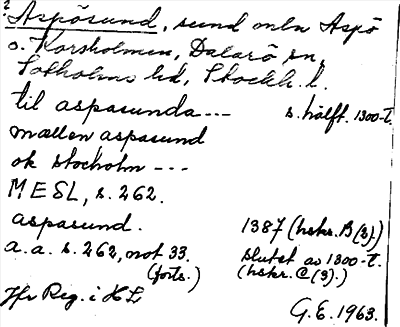 2 Aspösund, sund mln Aspö
o. Korsholmen, Dalarö sn,
Sotholms hd, Stockh. l.
til aspasunda --- s. hälft. 1300-t.
mællen aspasund
ok stocholm ---
MESL, s. 262.
aspasund. 1387 (hskr. B (3).)
a.a. s. 262, not 33. slutet av 1300-t.
(forts.) (hskr. C (3).)
Jfr Reg. i HL
G.E. 1963.